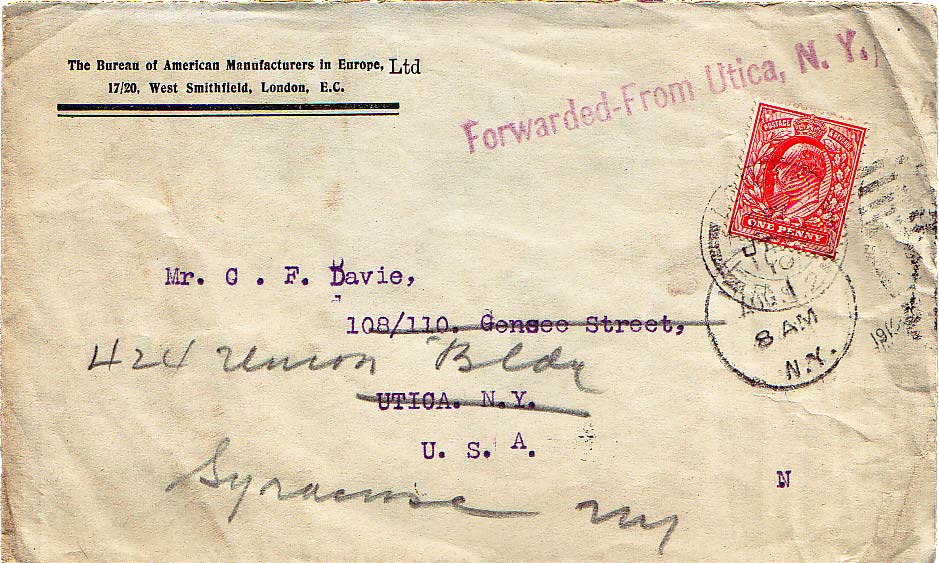 The Bureau of American Manufacturers in Europe, Ltd
17/20, West Smithfield, London, E.C.
Forwarded-From Utica, N. Y.
POSTAGE REVENUE
ONE PENNY
8 AM
N.Y.
Mr. C . F. Davie,
108/110. Gensee Street,
424 Union Bldg
UTICA. N.Y.
U. S. A.
Syracuse NY
N